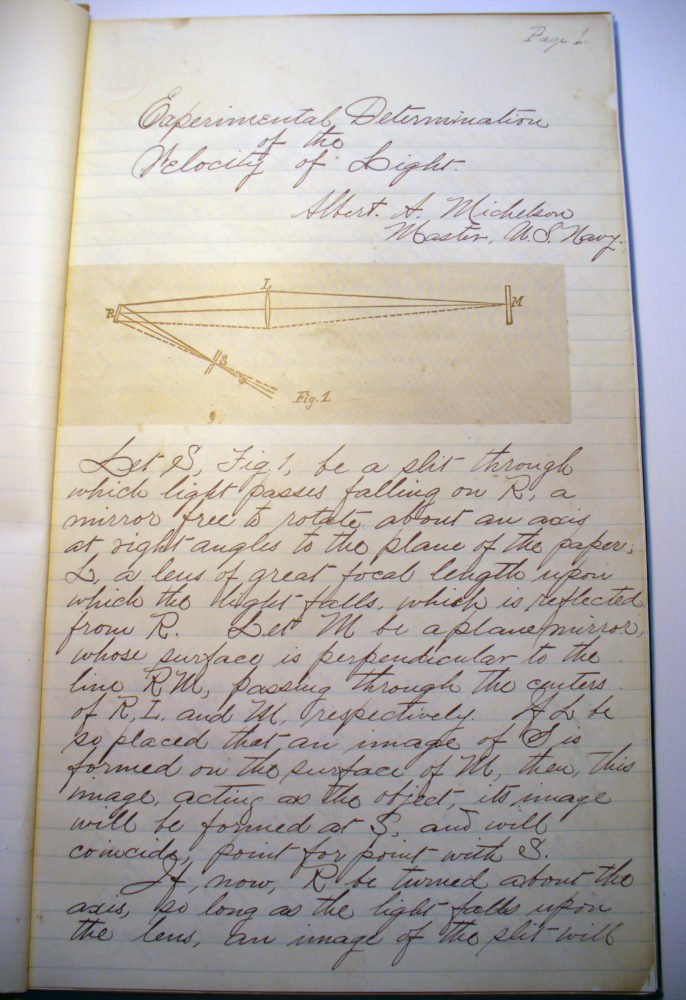 Page 1.
Experimental Determination
of the
Velocity of Light.
Albert. A. Michelson
Master, U.S. Navy.
L
R
M
S
Fig. 1.
Let S, Fig 1, be a slit through
which light passes falling on R, a
mirror free to rotate about an axis
at right angles to the plane of the paper;
L, a lens of great focal length upon
which the light falls, which is reflected
from R. Let M be a plane mirror,
whose surface is perpendicular to the
line RM, passing through the centers
of R, L. and M, respectively. If L be
so placed that an image of S is
formed on the surface of M, then, this
image, acting as the object, its image
will be formed at S, and will
coincide, point for point with S.
If, now, R be turned about the
axis, so long as the light falls upon
the lens, an image of the slit will